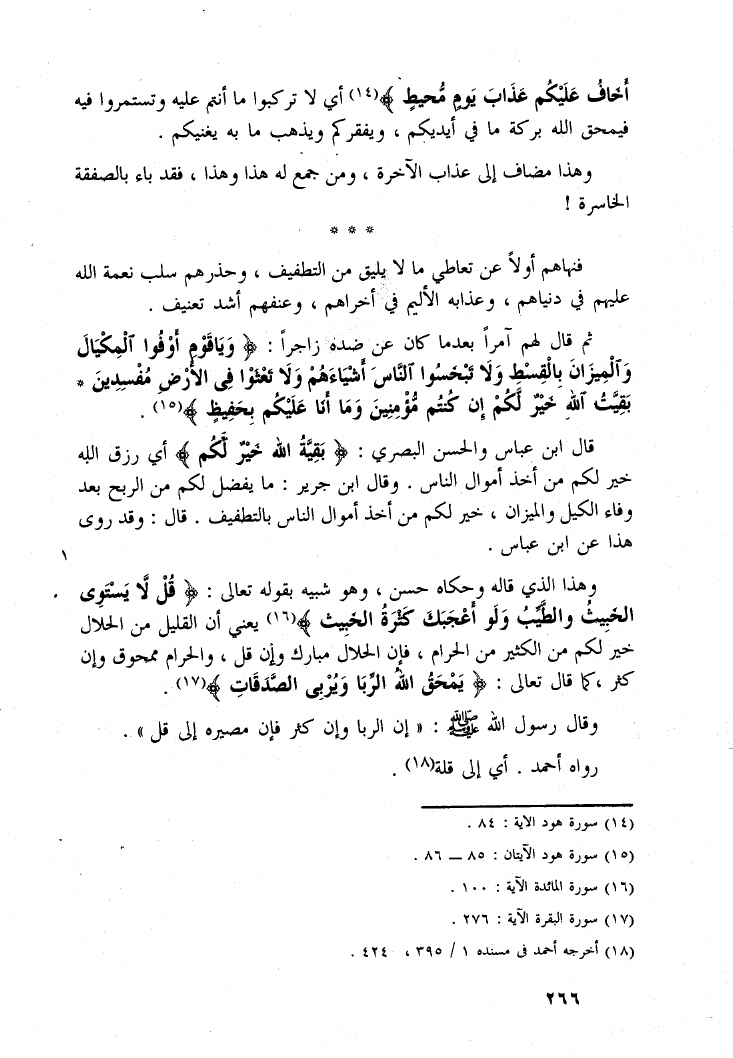 أَخَافُ عَلَيْكُم عَذَابَ يَومٍ مُّحيطٍ ﴾(١٤) أي لا تركبوا ما أنتم عليه وتستمروا فيه
فيمحق الله بركة ما في أيديكم ، ويفقركم ويذهب ما به يغنيكم .
وهذا مضاف إلى عذاب الآخرة ، ومن جمع له هذا وهذا ، فقد باء بالصفقة
الخاسرة !
* * *
فنهاهم أولاً عن تعاطي ما لا يليق من التطفيف ، وحذرهم سلب نعمة الله
عليهم في دنياهم ، وعذابه الأليم في أخراهم ، وعنفهم أشد تعنيف .
ثم قال لهم آمراً بعدما كان عن ضده زاجراً : ﴿ وَيَاقَوْمِ أَوْفُوا ٱلْمِكْيَالَ
وَٱلْمِيزَانَ بِالْقِسْطِ وَلَا تَبْخَسُوا ٱلنَّاسَ أَشْيَاءَهُمْ وَلَا تَعْثَوْا فِى الأَرْضِ مُفْسِدِينَ *
بَقِيَّتُ ٱللهِ خَيْرٌ لَّكُمْ إِن كُنتُم مُّؤْمِنِينَ وَمَا أَنَا عَلَيْكُم بِحَفِيظٍ ﴾(١٥) .
قال ابن عباس والحسن البصري : ﴿ بَقِيَّةُ اللهِ خَيْرٌ لَّكُم ﴾ أي رزق الله
خير لكم من أخذ أموال الناس . وقال ابن جرير : ما يفضل لكم من الربح بعد
وفاء الكيل والميزان ، خير لكم من أخذ أموال الناس بالتطفيف . قال : وقد روى
هذا عن ابن عباس .
وهذا الذي قاله وحكاه حسن ، وهو شبيه بقوله تعالى : ﴿ قُلْ لَّا يَسْتَوِى
الخَبِيثُ والطَّيِّبُ وَلَو أَعْجَبَكَ كَثْرَةُ الخَبِيث ﴾(١٦) يعني أن القليل من الحلال
خير لكم من الكثير من الحرام ، فإن الحلال مبارك وإن قل ، والحرام ممحوق وإن
كثر ،كما قال تعالى : ﴿ يَمْحَقُ اللهُ الرِّبَا وَيُرْبِى الصَّدَقَاتِ ﴾(١٧) .
وقال رسول الله ﷺ : « إن الربا وإن كثر فإن مصيره إلى قل » .
رواه أحمد . أي إلى قلة(١٨) .
(١٤) سورة هود الآية : ٨٤ .
(١٥) سورة هود الآيتان : ٨٥ — ٨٦ .
(١٦) سورة المائدة الآية : ١٠٠ .
(١٧) سورة البقرة الآية : ٢٧٦ .
(١٨) أخرجه أحمد فى مسنده ١ / ٣٩٥ ، ٤٢٤ .
٢٦٦